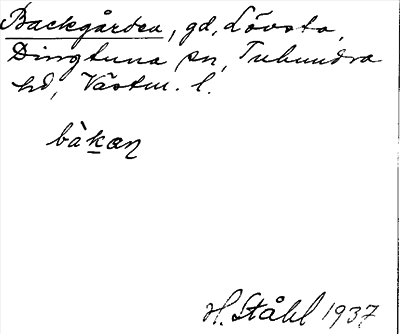 Backgården, gd, Lövsta,
Dingtuna sn, Tuhundra
hd, Västm. l.
bàkan
H. Ståhl 1937